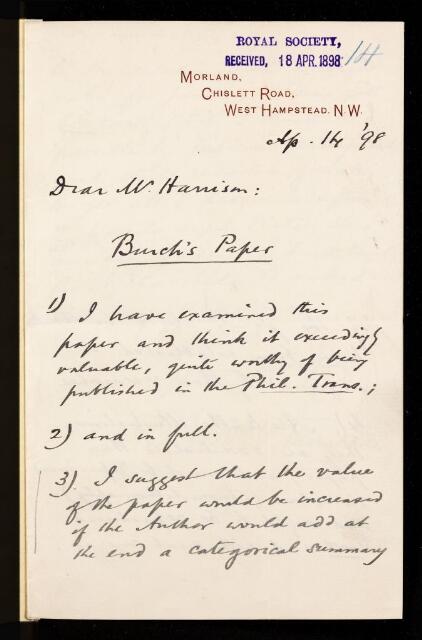 ROYAL SOCIETY,
RECEIVED, 18 APR. 1898 14
MORLAND,
CHISLETT ROAD,
WEST HAMPSTEAD. N.W.
Ap. 14 '98
Dear Mr. Harrison:
Burch's Paper
1) I have examined this
paper and think it exceedingly
valuable, quite worthy of being
published in the Phil. Trans.;
2) and in full.
3). I suggest that the value
of the paper would be increased
if the Author would add at
the end a categorical summary